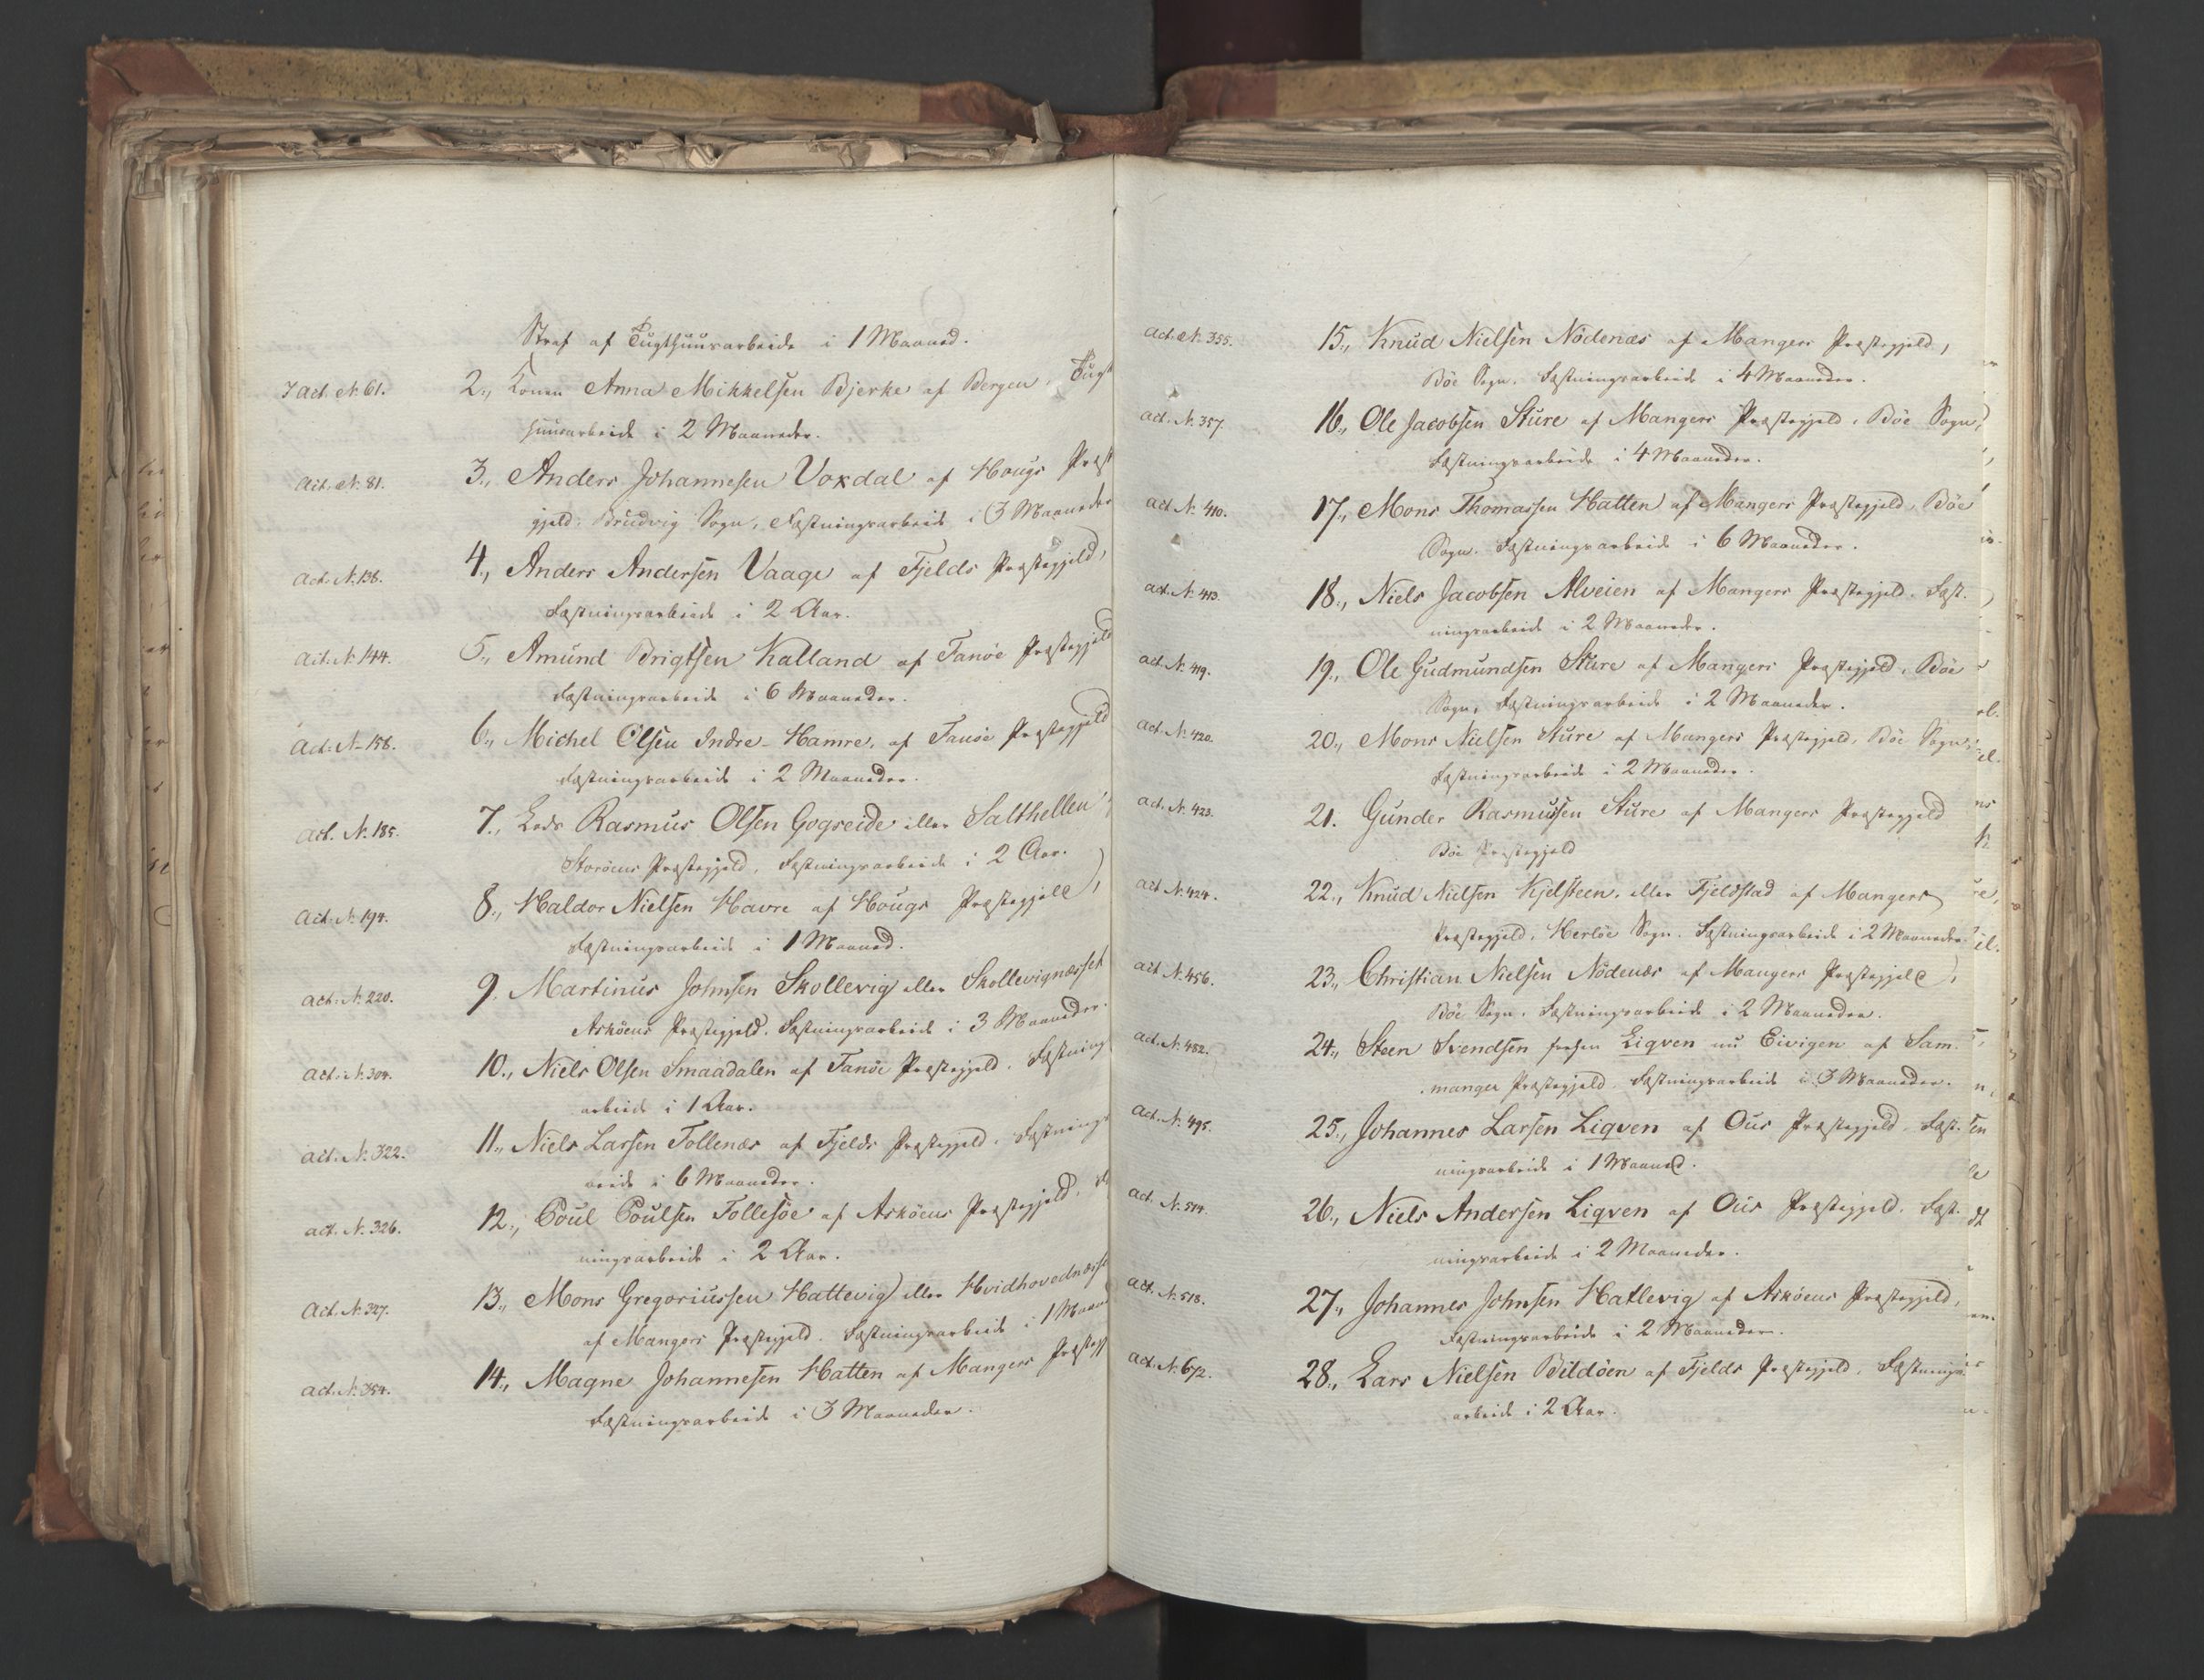 Straf af Tugthuusarbeide i 1 Maaned.
I Act. N. 61. 2., Konen Anna Mikkelsen Bjerke af Bergen, Tugt
huusarbeide i 2 Maaneder.
Act. N. 81. 3., Anders Johannesen Voxdal af Hougs Præst
gjeld, Brudvig Sogn, Fæstningsarbeide i 3 Maaneder
Act. N. 138. 4., Anders Andersen Vaage af Fjelds Præstegjeld,
Fæstningsarbeide i 2 Aar.
Act. N. 144. 5., Amund Brigtsen Kalland af Fanöe Præstegjeld
Fæstningsarbeide i 6 Maaneder.
Act. N. 158. 6., Michel Olsen Indre-Hamre, af Fanöe Præstegjeld
Fæstningsarbeide i 2 Maaneder.
Act. N. 185. 7., Lods Rasmus Olsen Gogseide eller Salthellen,
Storöens Præstegjeld, Fæstningsarbeide i 2 Aar.
Act. N. 194. 8., Haldor Nielsen Havre af Hougs Præstegjeld,
Fæstningsarbeide i 1 Maaned.
Act. N. 220. 9. Martinus Johnsen Skollevig eller Skollevignæsset
Asköens Præstegjeld. Fæstningsarbeide i 3 Maaneder.
Act. N. 304. 10., Niels Olsen Smaadalen af Fanöe Præstegjeld. Fæstning
arbeide i 1 Aar.
Act. N. 322. 11., Niels Larsen Tollenæs af Fjelds Præstegjeld. Fæstnings
beide i 6 Maaneder.
Act. N. 326. 12., Poul Poulsen Follesöe af Asköens Præstegjeld. Fæ
ningsarbeide i 2 Aar.
Act. N. 327. 13., Mons Gregoriussen Hattevig eller Hvidhovednæsse
af Mangers Præstegjeld. Fæstningsarbeide i 1 Maaned
Act. N. 354. 14., Magne Johannesen Hatten af Mangers Præstegj
Fæstningsarbeide i 3 Maaneder.
Act. N. 355. 15., Knud Nielsen Nödenæs af Mangers Præstegjeld,
Böe Sogn. Fæstningsarbeide i 4 Maaneder.
Act. N. 357. 16., Ole Jacobsen Sture af Mangers Præstegjeld, Böe Sogn,
Fæstningsarbeide i 4 Maaneder.
Act. N. 410. 17., Mons Thomassen Hatten af Mangers Præstegjeld, Böe
Sogn. Fæstningsarbeide i 6 Maaneder.
Act. N. 413. 18., Niels Jacobsen Alveien af Mangers Præstegjeld. Fæst-
ningsarbeide i 2 Maaneder.
Act. N. 419. 19., Ole Gudmundsen Sture af Mangers Præstegjeld, Böe
Sogn, Fæstningsarbeide i 2 Maaneder.
Act. N. 420. 20., Mons Nielsen Sture af Mangers Præstegjeld, Böe Sogn,
Fæstningsarbeide i 2 Maaneder.
Act. N. 423. 21. Gunder Rasmussen Sture af Mangers Præstegjeld
Böe Præstegjeld
Act. N. 424. 22., Knud Nielsen Kjelsteen, eller Fjeldstad af Mangers
Præstegjeld, Herlöe Sogn. Fæstningsarbeide i 2 Maaneder.
Act. N. 456. 23., Christian Nielsen Nödenæs af Mangers Præstegjeld,
Böe Sogn. Fæstningsarbeide i 2 Maaneder.
Act. N. 482. 24., Steen Svendsen forhen Liqven nu Eivigen af Sam-
manger Præstegjeld. Fæstningsarbeide i 3 Maaneder.
Act. N. 495. 25., Johannes Larsen Liqven af Ous Præstegjeld. Fæst-
ningsarbeide i 1 Maaned.
Act. N. 514. 26., Niels Andersen Liqven af Ous Præstegjeld. Fæst-
ningsarbeide i 2 Maaneder.
Act. N. 518. 27., Johannes Johnsen Hatlevig af Asköens Præstegjeld,
Fæstningsarbeide i 2 Maaneder.
Act. N. 672. 28., Lars Nielsen Bildöen af Fjelds Præstegjeld, Fæstnings-
arbeide i 2 Aar.